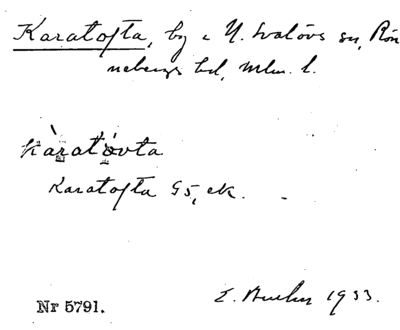 Karatofta, by i N. Svalövs sn, Rön
nebergs hd, Mlm. l.
kàratóvta
Karatofta G5, ek.
Nr 5791.
E. 1933.